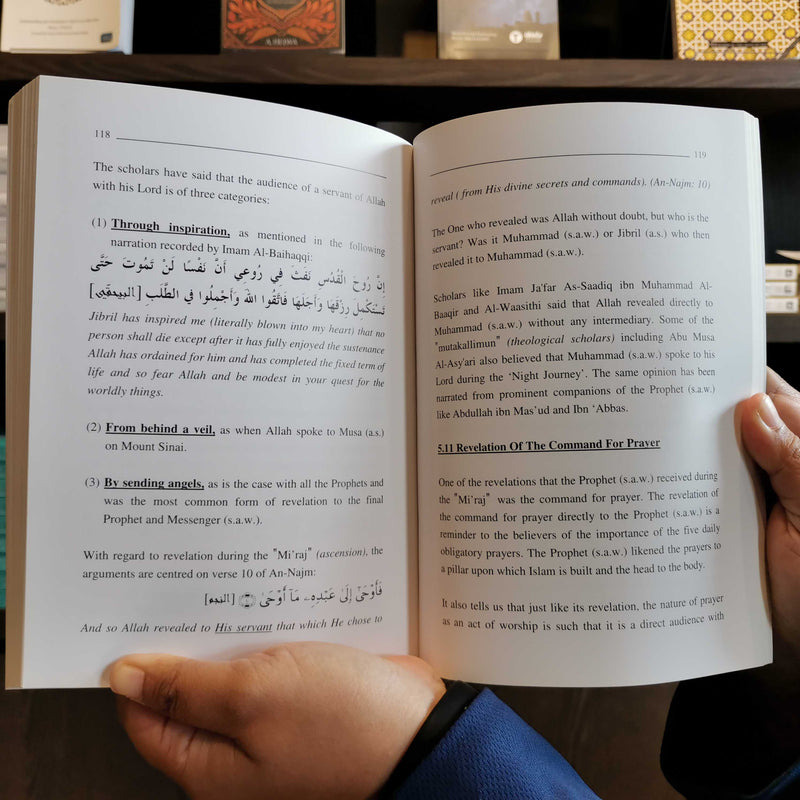 118
The scholars have said that the audience of a servant of Allah
with his Lord is of three categories:
(1) Through inspiration, as mentioned in the following
narration recorded by Imam Al-Baihaqqi:
إِنَّ رُوحَ الْقُدُسِ نَفَثَ فِي رُوعِي أَنَّ نَفْسًا لَنْ تَمُوتَ حَتَّى
تَسْتَكْمِلَ رِزْقَهَا وَأَجَلَهَا فَاتَّقُوا اللهَ وَأَجْمِلُوا فِي الطَّلَبِ [البيهقي]
Jibril has inspired me (literally blown into my heart) that no
person shall die except after it has fully enjoyed the sustenance
Allah has ordained for him and has completed the fixed term of
life and so fear Allah and be modest in your quest for the
worldly things.
(2) From behind a veil, as when Allah spoke to Musa (a.s.)
on Mount Sinai.
(3) By sending angels, as is the case with all the Prophets and
was the most common form of revelation to the final
Prophet and Messenger (s.a.w.).
With regard to revelation during the "Mi'raj" (ascension), the
arguments are centred on verse 10 of An-Najm:
فَأَوْحَىٰٓ إِلَىٰ عَبْدِهِۦ مَآ أَوْحَىٰ ۝ [النجم]
And so Allah revealed to His servant that which He chose to
119
reveal ( from His divine secrets and commands). (An-Najm: 10)
The One who revealed was Allah without doubt, but who is the
servant? Was it Muhammad (s.a.w.) or Jibril (a.s.) who then
revealed it to Muhammad (s.a.w.).
Scholars like Imam Ja'far As-Saadiq ibn Muhammad Al-
Baaqir and Al-Waasithi said that Allah revealed directly to
Muhammad (s.a.w.) without any intermediary. Some of the
"mutakallimun" (theological scholars) including Abu Musa
Al-Asy'ari also believed that Muhammad (s.a.w.) spoke to his
Lord during the 'Night Journey'. The same opinion has been
narrated from prominent companions of the Prophet (s.a.w.)
like Abdullah ibn Mas'ud and Ibn 'Abbas.
5.11 Revelation Of The Command For Prayer
One of the revelations that the Prophet (s.a.w.) received during
the "Mi'raj" was the command for prayer. The revelation of
the command for prayer directly to the Prophet (s.a.w.) is a
reminder to the believers of the importance of the five daily
obligatory prayers. The Prophet (s.a.w.) likened the prayers to
a pillar upon which Islam is built and the head to the body.
It also tells us that just like its revelation, the nature of prayer
as an act of worship is such that it is a direct audience with